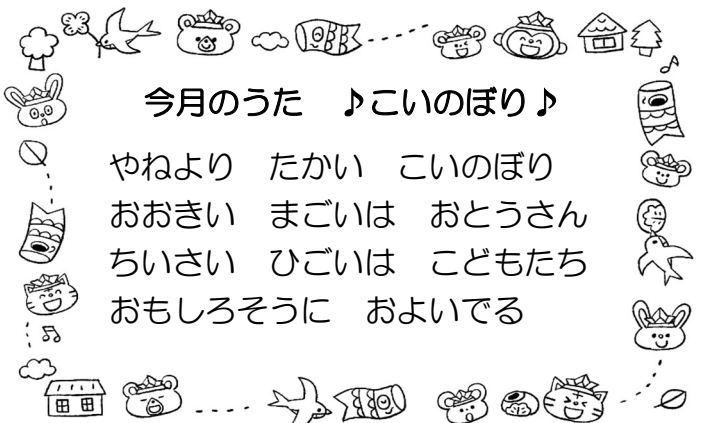 今月のうた　♪こいのぼり♪
やねより　たかい　こいのぼり
おおきい　まごいは　おとうさん
ちいさい　ひごいは　こどもたち
おもしろそうに　およいでる